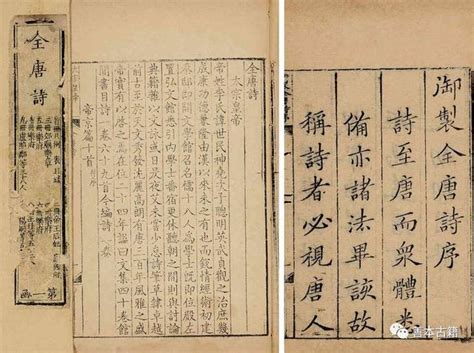 御製全唐詩序
詩至唐而眾體悉
備亦諸法畢該故
稱詩者必視唐人
全唐詩
太宗皇帝
帝姓李氏諱世民神堯次子聰明英武貞觀之治庶幾
成康功德兼隆由漢以來未之有也而銳情經術初建
秦邸即開文學館召名儒十八人為學士既即位殿左
置弘文館悉引內學士番宿更休聽朝之間則與討論
典籍雜以文詠或日昃夜艾未嘗少怠詩筆草隸卓越
前古至於天文秀發沈麗高朗有唐三百年風雅之盛
帝實有以啟之焉在位二十四年諡曰文集四十卷館
閣書目詩一卷六十九首今編詩一卷
帝京篇十首
全唐詩
第一函
善本古籍